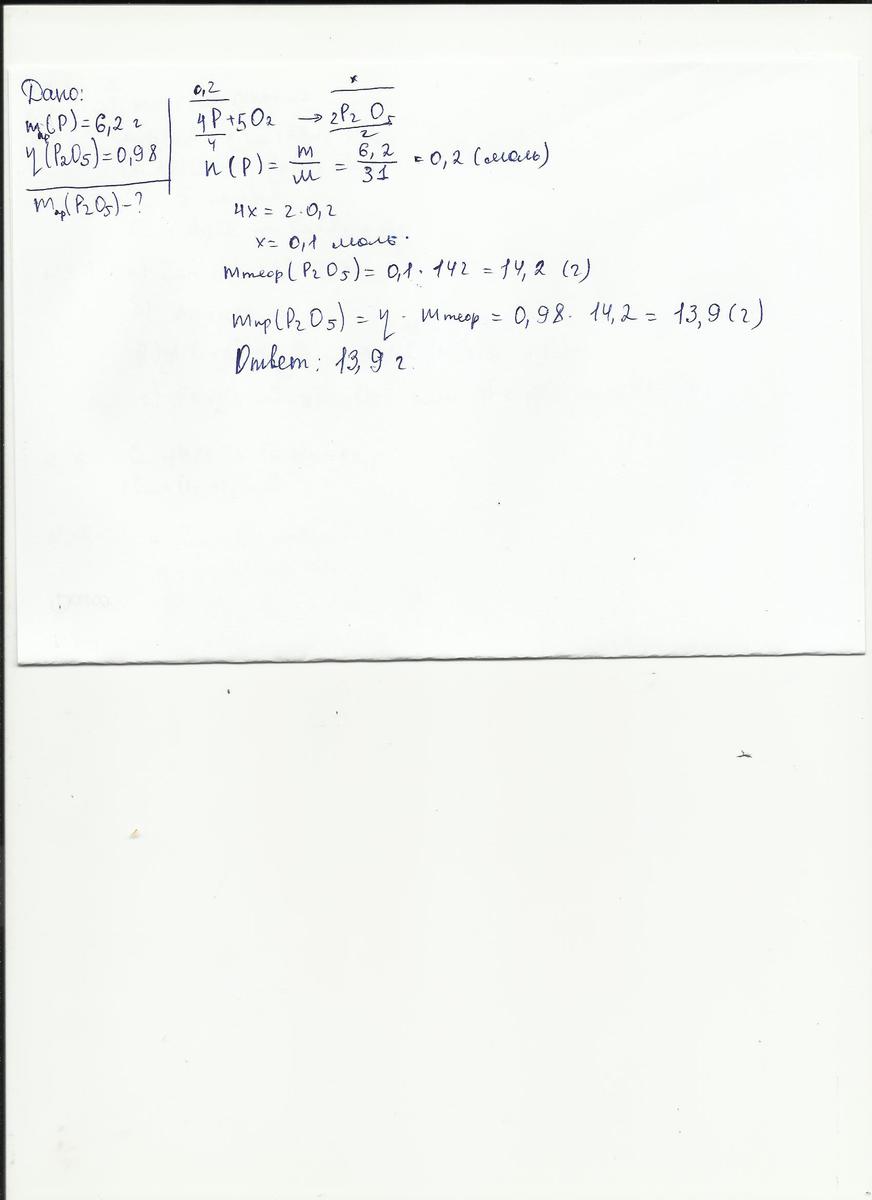 Дано:
mпр(P) = 6,2 г
η(P₂O₅) = 0,98
mпр(P₂O₅) - ?
0,2 x
4P + 5O₂ → 2P₂O₅
4 2
n(P) = m/M = 6,2/31 = 0,2 (моль)
4x = 2·0,2
x = 0,1 моль.
mтеор(P₂O₅) = 0,1 · 142 = 14,2 (г)
mпр(P₂O₅) = η · mтеор = 0,98 · 14,2 = 13,9 (г)
Ответ: 13,9 г.